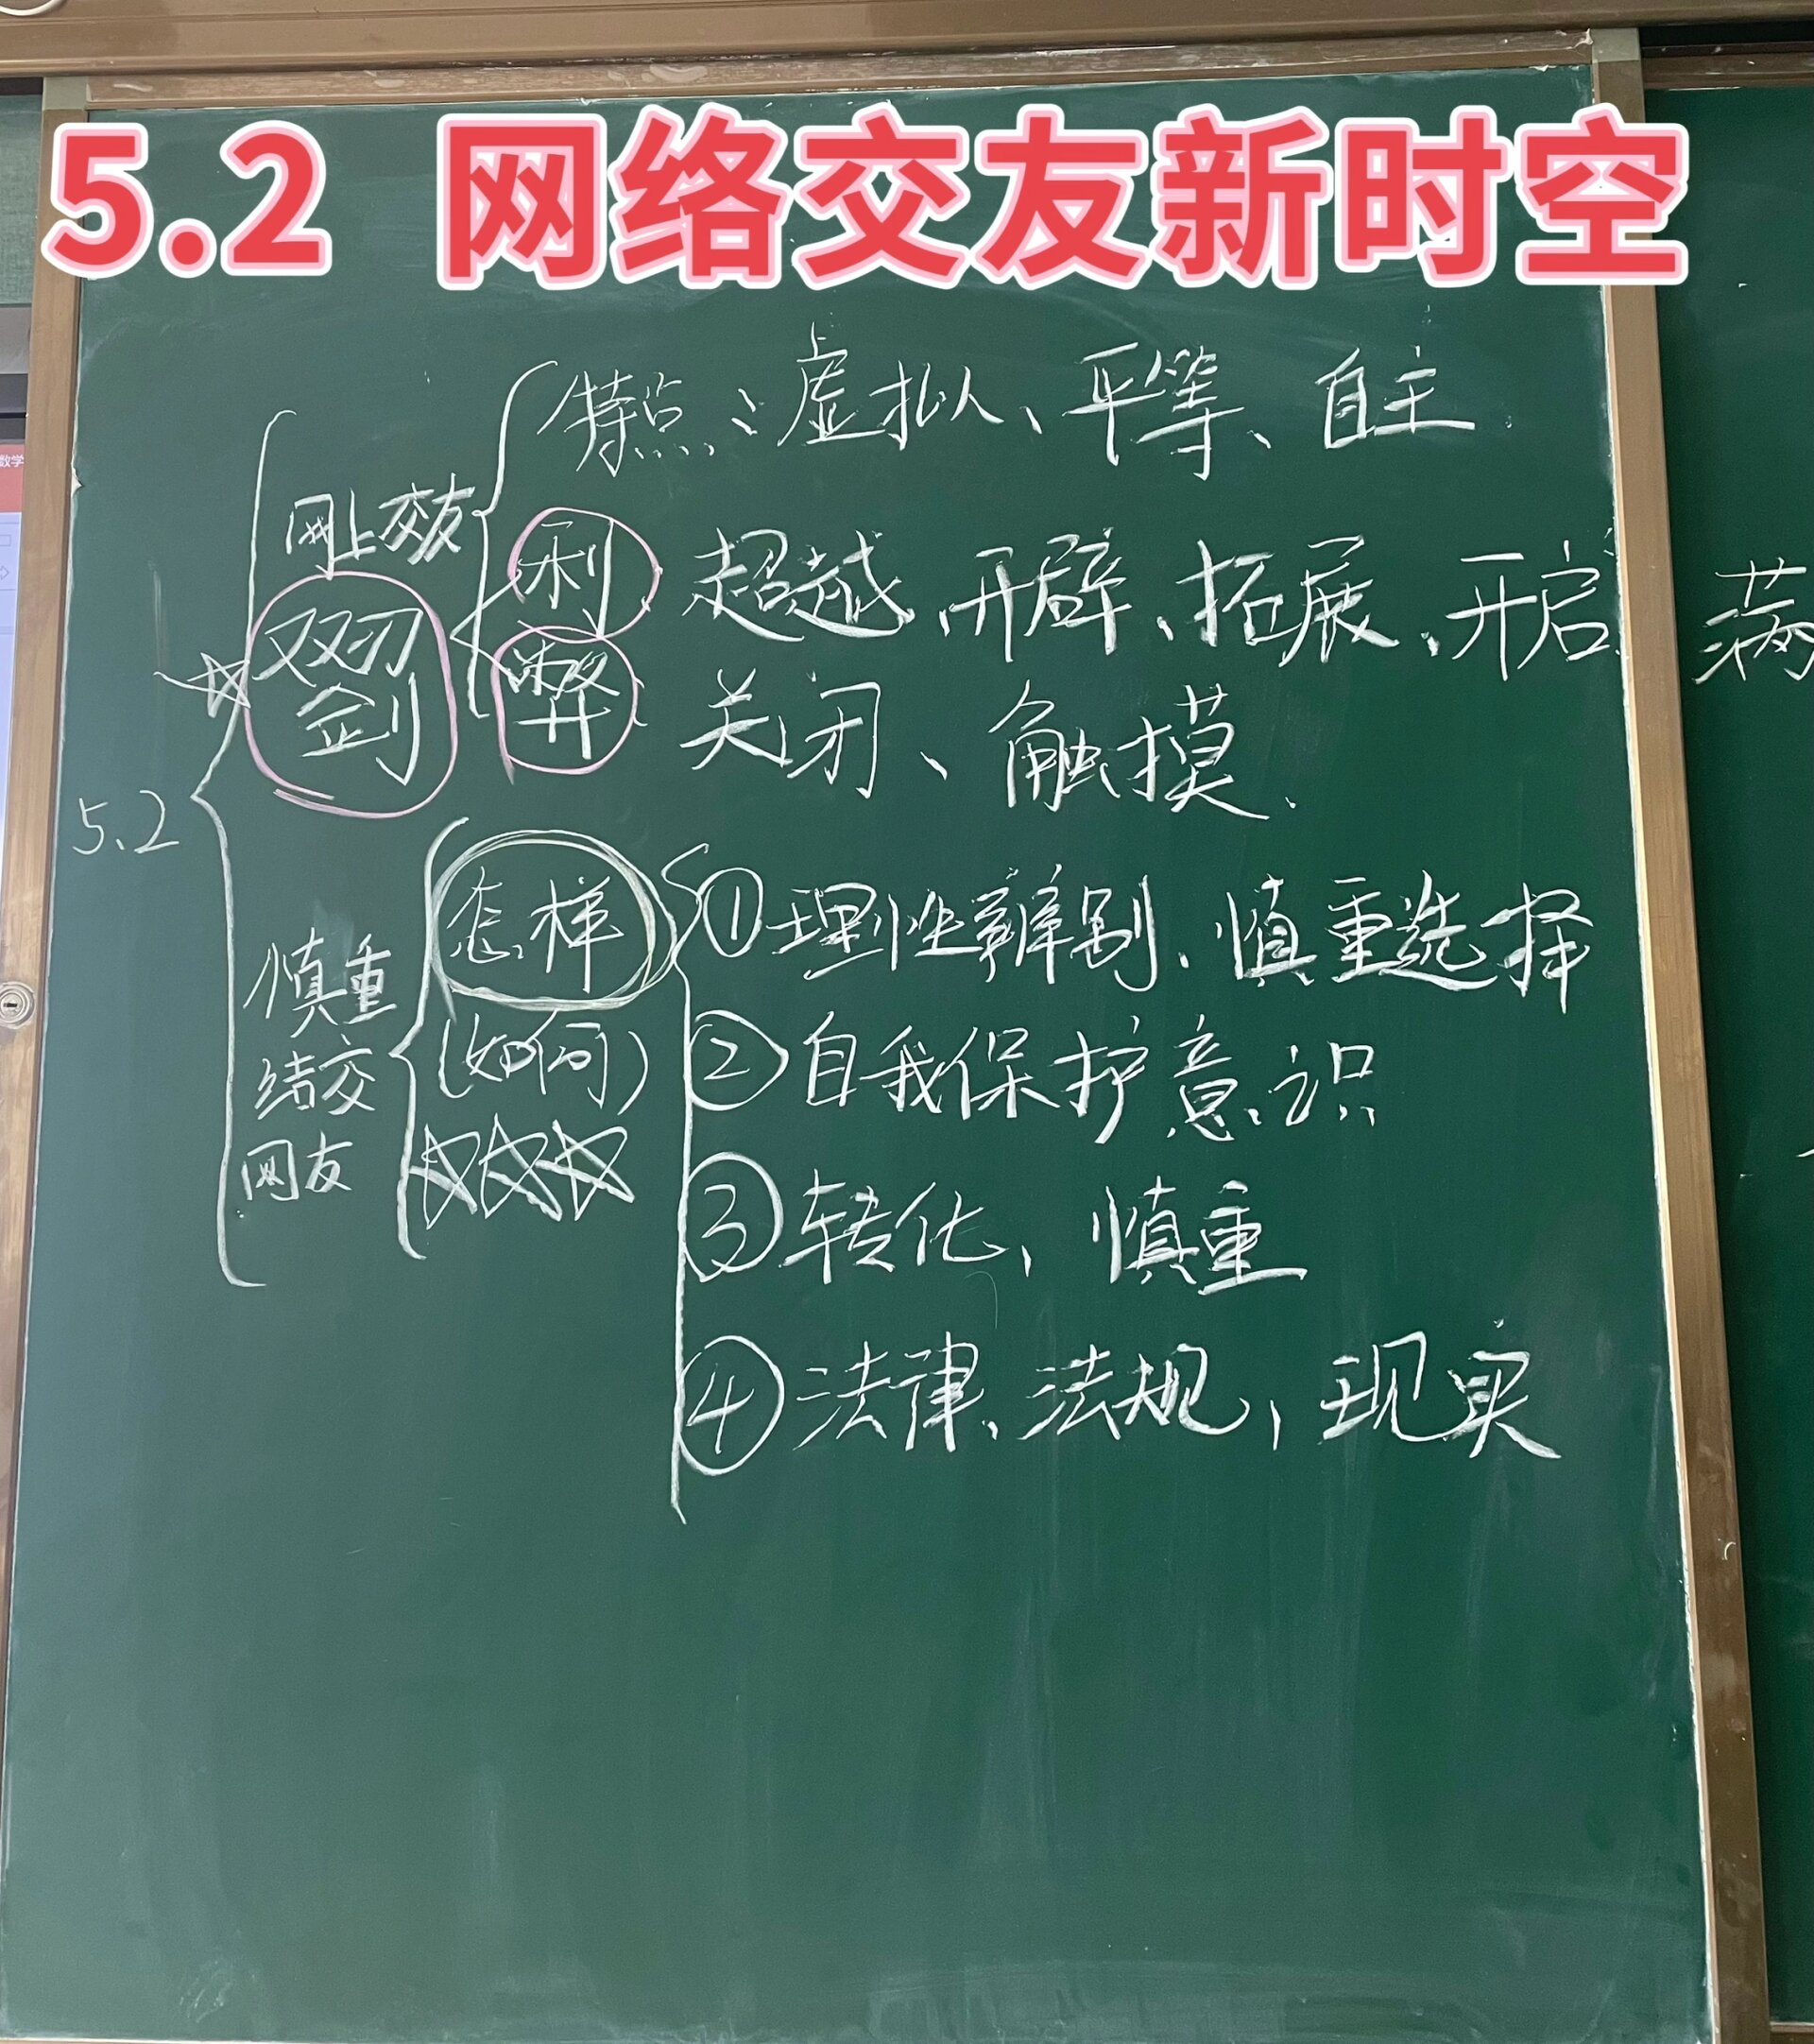 5.2 网络交友新时空
特点：虚拟、平等、自主
网上交友
利 超越、开辟、拓展、开启 满
双刃
剑
弊 关闭、触摸.
5.2
怎样
(如何)
慎重
结交
网友
①理性辨别、慎重选择
②自我保护意识
③转化，慎重
④法律、法规，现实
数学